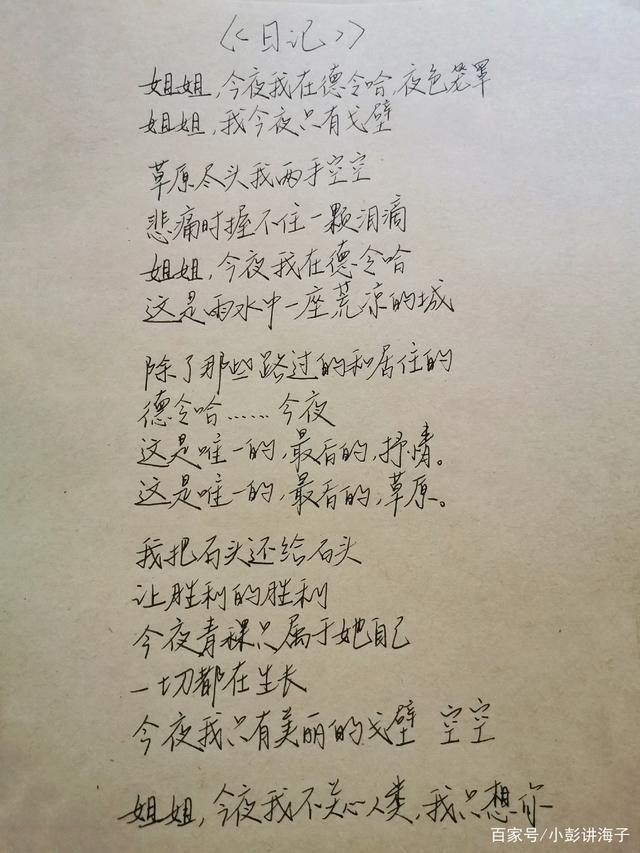 《日记》
姐姐，今夜我在德令哈，夜色笼罩
姐姐，我今夜只有戈壁
草原尽头我两手空空
悲痛时握不住一颗泪滴
姐姐，今夜我在德令哈
这是雨水中一座荒凉的城
除了那些路过的和居住的
德令哈……今夜
这是唯一的，最后的，抒情。
这是唯一的，最后的，草原。
我把石头还给石头
让胜利的胜利
今夜青稞只属于她自己
一切都在生长
今夜我只有美丽的戈壁 空空
姐姐，今夜我不关心人类，我只想你
百家号/小彭讲海子